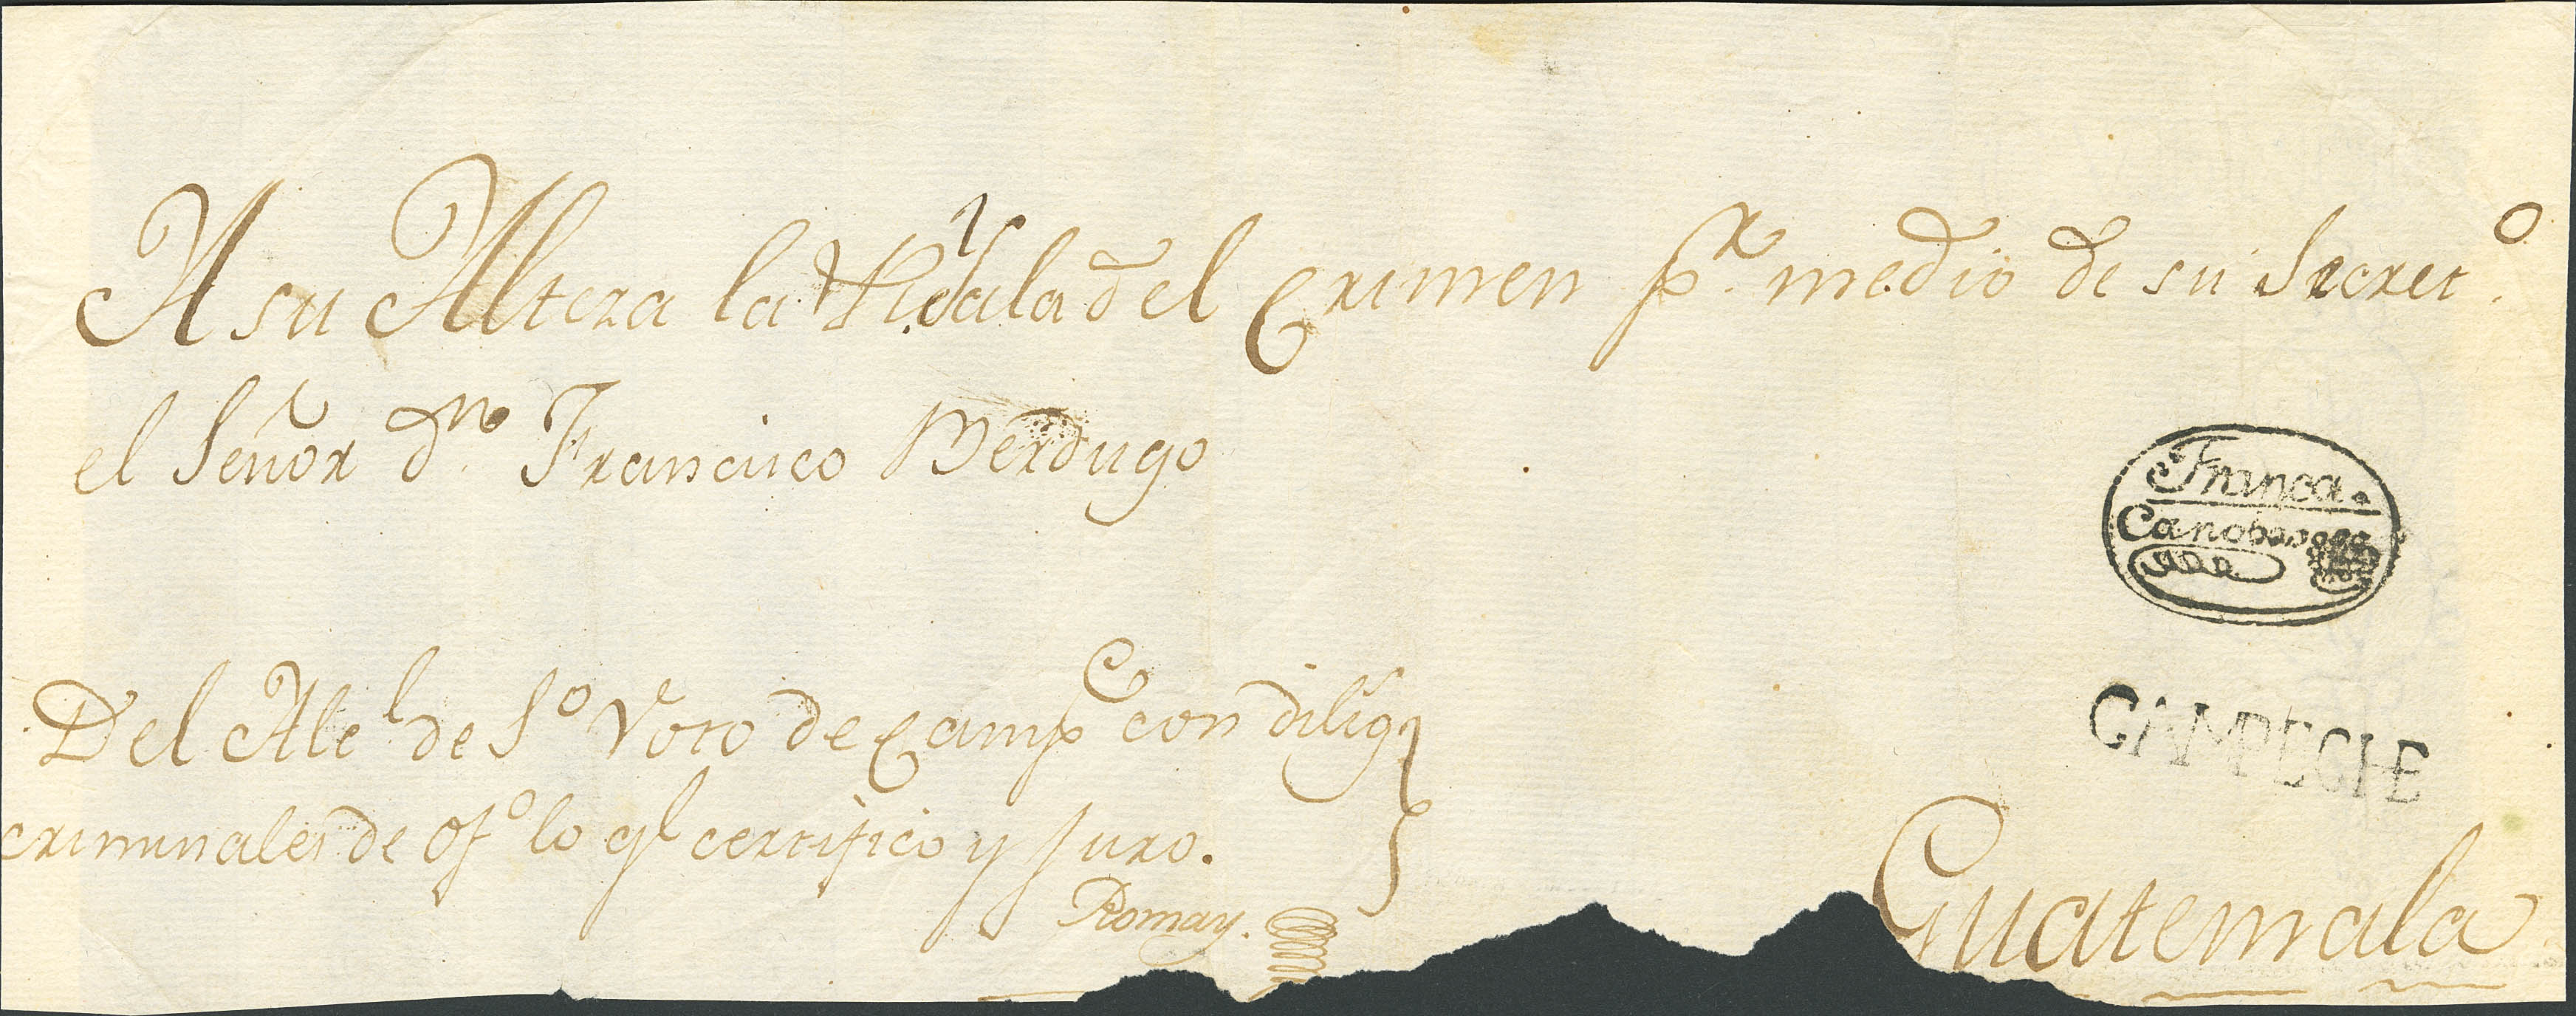 A su Alteza la Rl Sala del Crimen pr. medio de su Secreto.
el Señor dn. Francisco Berdugo
Franca.
CAMPECHE
Del Alcl de So Voto de Campe con dilig
criminales de ofo lo ql certifico y juro.
Romay.
Guatemala